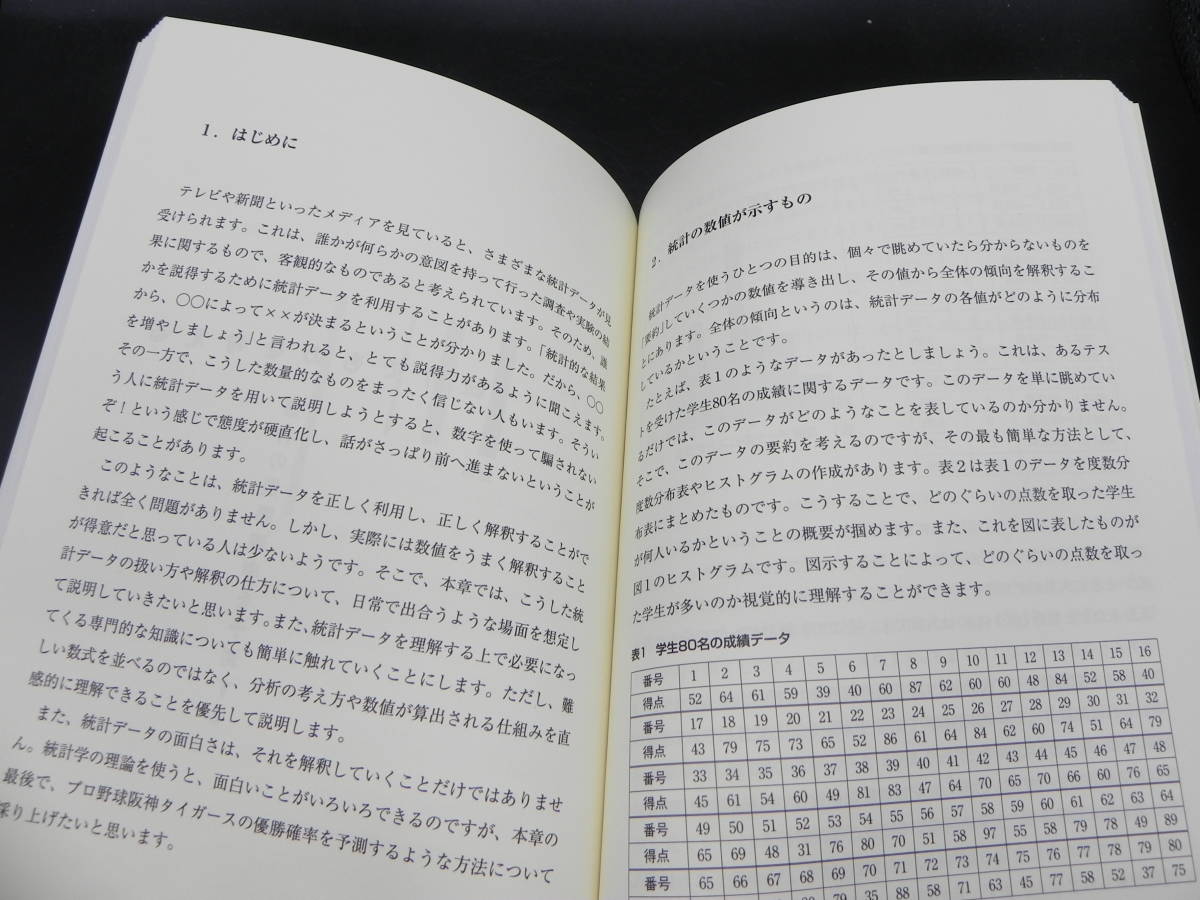 1. はじめに
テレビや新聞といったメディアを見ていると、さまざまな統計データが見
受けられます。これは、誰かが何らかの意図を持って行った調査や実験の結
果に関するもので、客観的なものであると考えられています。そのため、誰
かを説得するために統計データを利用することがあります。「統計的な結果
から、○○によって××が決まるということが分かりました。だから、○○
を増やしましょう」と言われると、とても説得力があるように聞こえます。
その一方で、こうした数量的なものをまったく信じない人もいます。そうい
う人に統計データを用いて説明しようとすると、数字を使って騙されない
ぞ!という感じで態度が硬直化し、話がさっぱり前へ進まないということが
起こることがあります。
このようなことは、統計データを正しく利用し、正しく解釈することがで
きれば全く問題がありません。しかし、実際には数値をうまく解釈すること
が得意だと思っている人は少ないようです。そこで、本章では、こうした統
計データの扱い方や解釈の仕方について、日常で出合うような場面を想定し
て説明していきたいと思います。また、統計データを理解する上で必要になっ
てくる専門的な知識についても簡単に触れていくことにします。ただし、難
しい数式を並べるのではなく、分析の考え方や数値が算出される仕組みを直
感的に理解できることを優先して説明します。
また、統計データの面白さは、それを解釈していくことだけではありませ
ん。統計学の理論を使うと、面白いことがいろいろできるのですが、本章の
最後で、プロ野球阪神タイガースの優勝確率を予測するような方法について
採り上げたいと思います。
2. 統計の数値が示すもの
統計データを使うひとつの目的は、個々で眺めていたら分からないものを
「要約」していくつかの数値を導き出し、その値から全体の傾向を解釈するこ
とにあります。全体の傾向というのは、統計データの各値がどのように分布
しているかということです。
たとえば、表1のようなデータがあったとしましょう。これは、あるテス
トを受けた学生80名の成績に関するデータです。このデータを単に眺めてい
るだけでは、このデータがどのようなことを表しているのか分かりません。
そこで、このデータの要約を考えるのですが、その最も簡単な方法として、
度数分布表やヒストグラムの作成があります。表2は表1のデータを度数分
布表にまとめたものです。こうすることで、どのぐらいの点数を取った学生
が何人いるかということの概要が掴めます。また、これを図に表したものが
図1のヒストグラムです。図示することによって、どのぐらいの点数を取っ
た学生が多いのか視覚的に理解することができます。
表1 学生80名の成績データ
番号 1 2 3 4 5 6 7 8 9 10 11 12 13 14 15 16
得点 52 64 61 59 39 40 60 87 62 60 60 48 84 52 58 40
番号 17 18 19 20 21 22 23 24 25 26 27 28 29 30 31 32
得点 43 79 75 73 65 52 86 61 64 84 62 60 74 51 64 79
番号 33 34 35 36 37 38 39 40 41 42 43 44 45 46 47 48
得点 45 61 54 60 49 81 83 47 64 70 65 70 66 60 76 65
番号 49 50 51 52 53 54 55 56 57 58 59 60 61 62 63 64
得点 65 69 48 31 76 80 70 51 58 97 55 58 79 78 49 89
番号 65 66 67 68 69 70 71 72 73 74 75 76 77 78 79 80
35 88 58 71 63 45 77 58 52 37 75